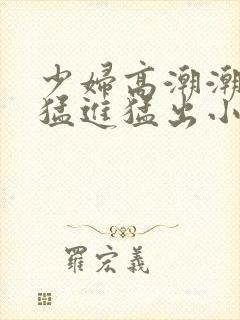 少婦高潮潮
猛進猛出小
羅宏義